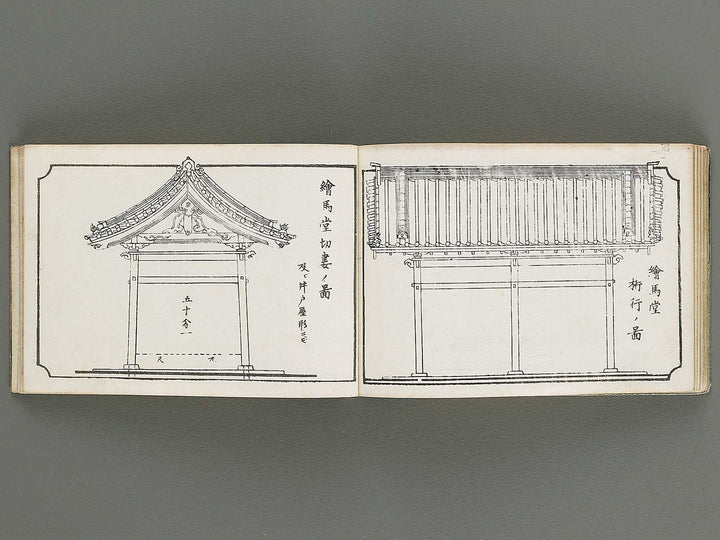 繪馬堂
桁行ノ圖
繪馬堂切妻ノ圖
及ヒ井戸屋形ニモ
五十分一